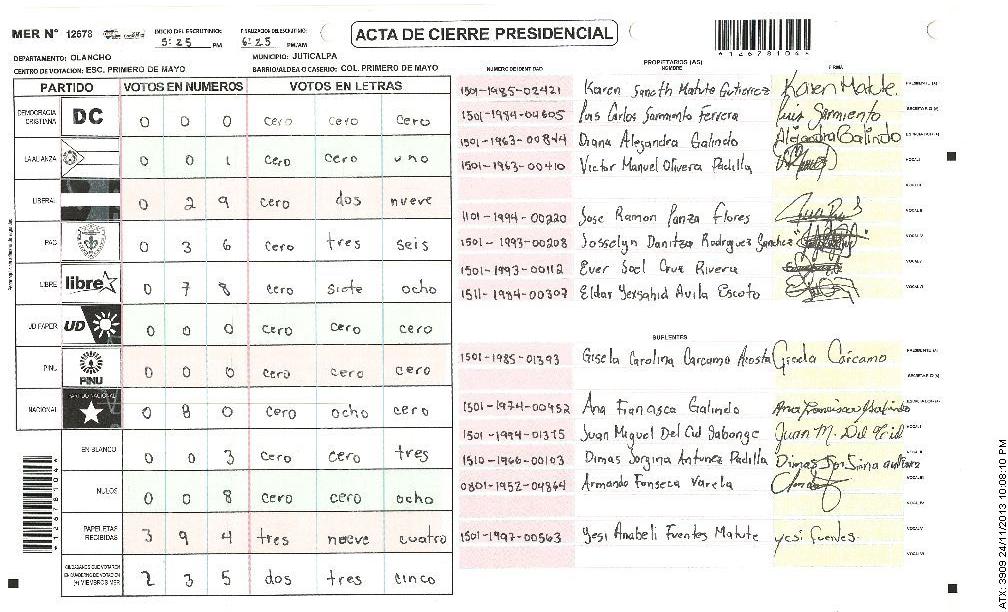 MER Nº 12678 INICIO DEL ESCRUTINIO: 5:25 PM FINALIZACION DEL ESCRUTINIO: 6:25 PM/AM
ACTA DE CIERRE PRESIDENCIAL
DEPARTAMENTO: OLANCHO MUNICIPIO: JUTICALPA
CENTRO DE VOTACION: ESC. PRIMERO DE MAYO BARRIO/ALDEA O CASERIO: COL. PRIMERO DE MAYO
PARTIDO VOTOS EN NUMEROS VOTOS EN LETRAS
DEMOCRACIA CRISTIANA DC 0 0 0 cero cero cero
LA ALIANZA 0 0 1 cero cero uno
LIBERAL 0 2 9 cero dos nueve
PAC 0 3 6 cero tres seis
LIBRE libre 0 7 8 cero siete ocho
UD FAPER UD 0 0 0 cero cero cero
PINU PINU 0 0 0 cero cero cero
NACIONAL PARTIDO NACIONAL 0 8 0 cero ocho cero
EN BLANCO 0 0 3 cero cero tres
NULOS 0 0 8 cero cero ocho
PAPELETAS RECIBIDAS 3 9 4 tres nueve cuatro
CIUDADANOS QUE VOTARON EN CUADERNO DE VOTACION (+) MIEMBROS MER 2 3 5 dos tres cinco
*12678104*
PROPIETARIOS (AS)
NUMERO DE IDENTIDAD NOMBRE FIRMA
1501-1985-02421 Karen Saneth Matute Gutierrez Karen Matute. PRESIDENTE (A)
1501-1984-04605 Luis Carlos Sarmiento Ferrera Luis Sarmiento SECRETARIO (A)
1501-1963-00844 Diana Alejandra Galindo Alejandra Galindo ESCRUTADOR (A)
1501-1963-00410 Victor Manuel Olivera Padilla VOCAL I
VOCAL II
1101-1994-00220 Jose Ramon Panza Flores VOCAL III
1501-1993-00208 Josselyn Danitza Rodriguez Sanchez VOCAL IV
1501-1993-00112 Ever Soel Cruz Rivera VOCAL V
1511-1984-00307 Eldar Yersahid Avila Escoto VOCAL VI
SUPLENTES
1501-1985-01393 Gisela Carolina Carcamo Acosta Gisela Cárcamo PRESIDENTE (A)
SECRETARIO (A)
1501-1974-00952 Ana Francisca Galindo Ana Francisca Galindo ESCRUTADOR (A)
1501-1994-01375 Juan Miguel Del Cid Sabonge Juan M. Del Cid VOCAL I
1510-1966-00103 Dimas Jorgina Antunez Padilla VOCAL II
0801-1952-04864 Armando Fonseca Varela VOCAL III
VOCAL IV
1501-1997-00563 Yesi Anabeli Fuentes Matute yesi fuentes. VOCAL V
VOCAL VI
*12678104*
ATX: 3909 24/11/2013 10:08:10 PM